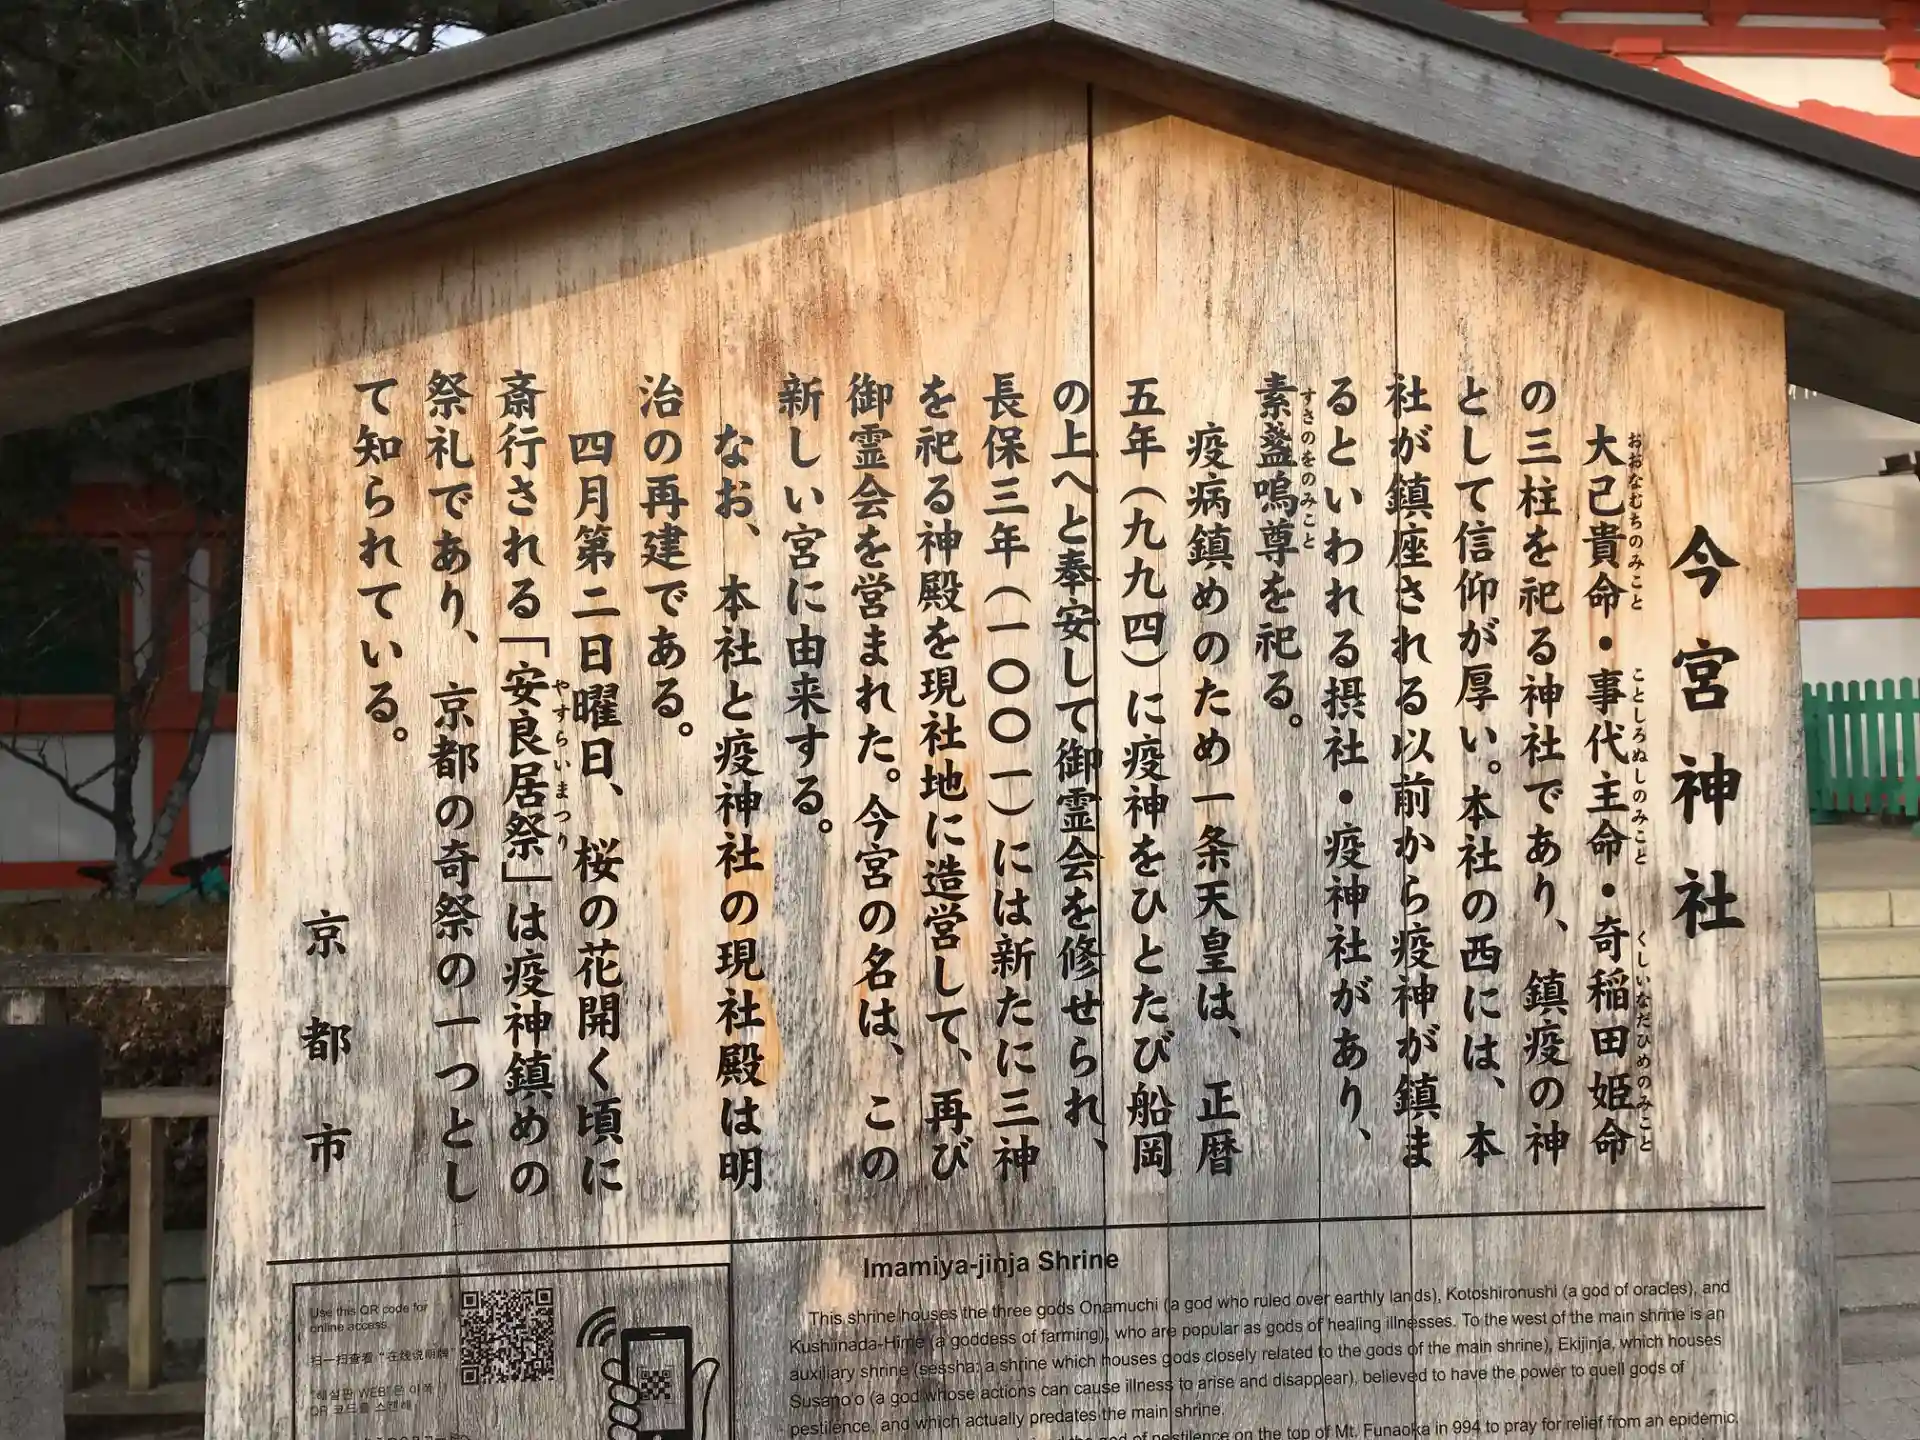 今宮神社
大己貴命・事代主命・奇稲田姫命
おおなむちのみこと ことしろぬしのみこと くしいなだひめのみこと
の三柱を祀る神社であり、鎮疫の神
として信仰が厚い。本社の西には、本
社が鎮座される以前から疫神が鎮ま
るといわれる摂社・疫神社があり、
素盞嗚尊を祀る。
すさのをのみこと
疫病鎮めのため一条天皇は、正暦
五年（九九四）に疫神をひとたび船岡
の上へと奉安して御霊会を修せられ、
長保三年（一〇〇一）には新たに三神
を祀る神殿を現社地に造営して、再び
御霊会を営まれた。今宮の名は、この
新しい宮に由来する。
なお、本社と疫神社の現社殿は明
治の再建である。
四月第二日曜日、桜の花開く頃に
斎行される「安良居祭」は疫神鎮めの
やすらいまつり
祭礼であり、京都の奇祭の一つとし
て知られている。
京都市
Imamiya-jinja Shrine
This shrine houses the three gods Onamuchi (a god who ruled over earthly lands), Kotoshironushi (a god of oracles), and
Kushiinada-Hime (a goddess of farming), who are popular as gods of healing illnesses. To the west of the main shrine is an
auxiliary shrine (sessha; a shrine which houses gods closely related to the gods of the main shrine), Ekijinja, which houses
Susano'o (a god whose actions can cause illness to arise and disappear), believed to have the power to quell gods of
pestilence, and which actually predates the main shrine.
god of pestilence on the top of Mt. Funaoka in 994 to pray for relief from an epidemic.
Use this QR code for
online access.
扫一扫查看“在线说明牌”
"해설판 WEB"은 이쪽
QR 코드를 스캔해